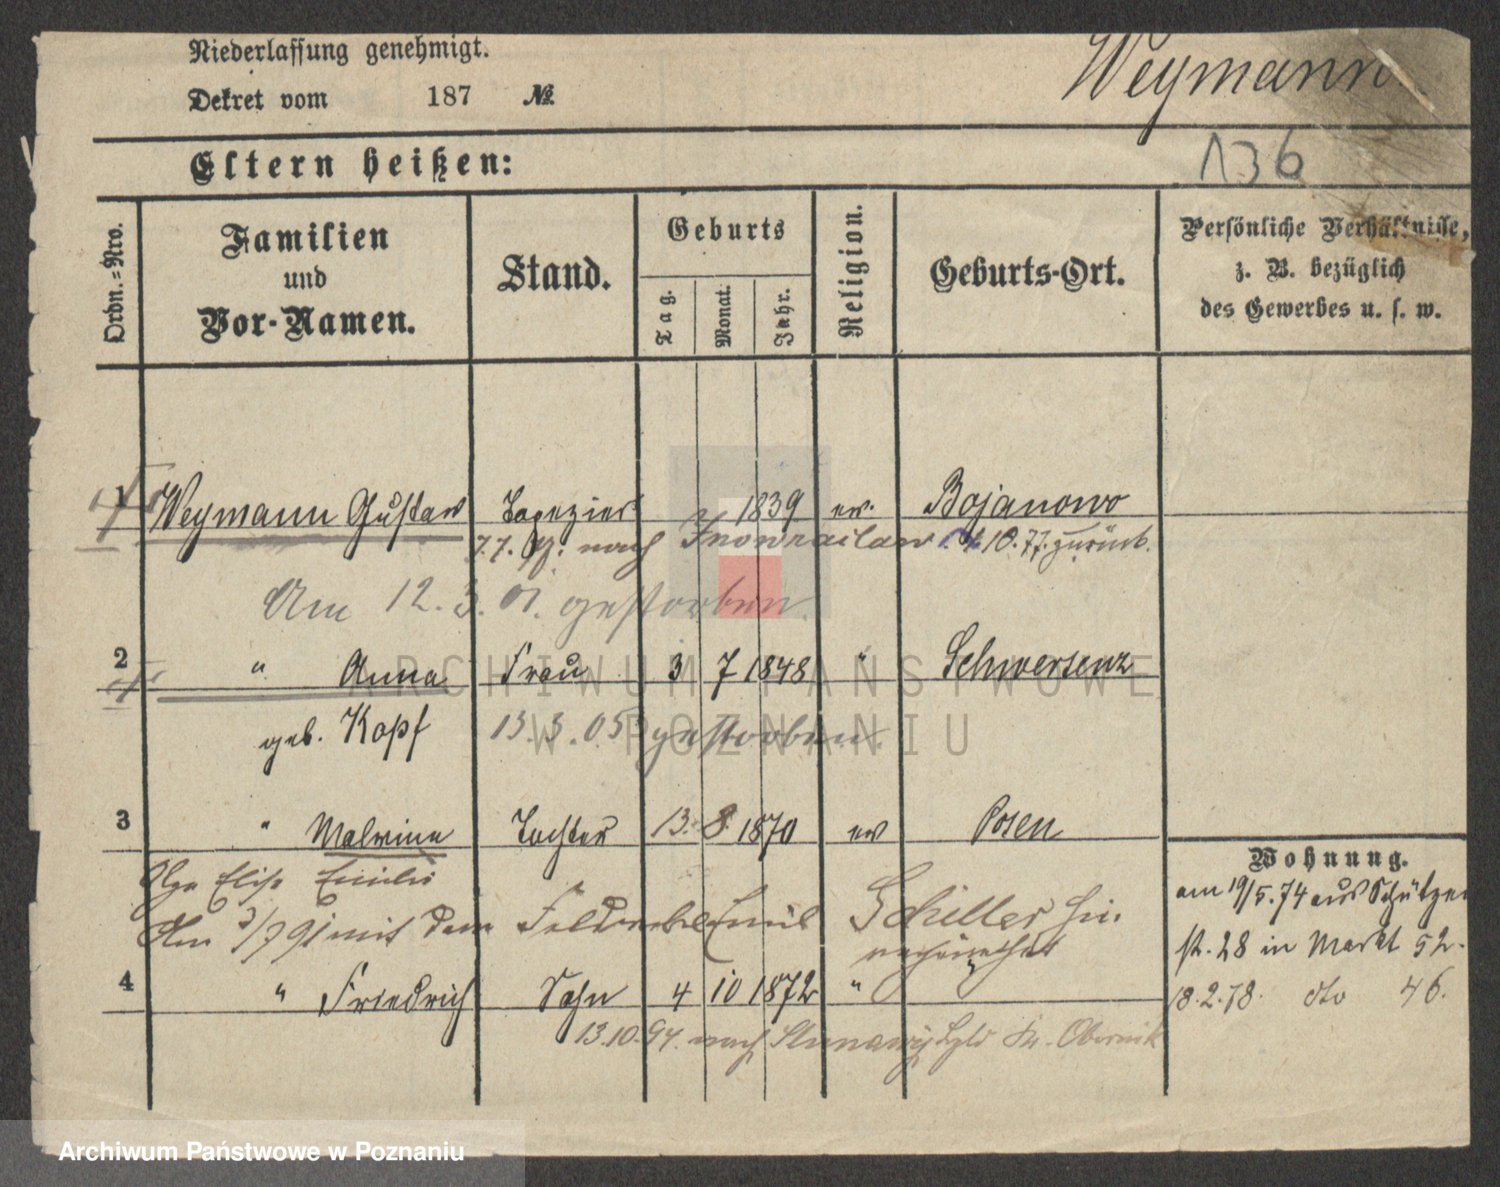 Niederlassung genehmigt.
Weymann
Dekret vom 187 №
136
Eltern heißen:
Ordn.=Nro.
Familien und Vor-Namen.
Stand.
Geburts
Tag.
Monat.
Jahr.
Religion.
Geburts-Ort.
Persönliche Verhältnisse,
z. B. bezüglich
des Gewerbes u. s. w.
1 Weymann Gustav Tapezier 1839 ev. Bojanowo
7.7. nach Inowrazlaw 10.77. zurück.
Am 12.3.01. gestorben
2 " Anna Frau 3 7 1848 " Schwersenz
geb. Kopf 13.3.05 gestorben
3 " Malwine Tochter 13. 8. 1870 ev Posen
Olga Elise Emilie
Am 3/7 91 mit dem Emil Schiller
4 " Friedrich Sohn 4 10 1872 "
13.10.94. nach Kr. Obornik
Wohnung.
am 19/5.74 aus Schützen
st. 28 in Markt 52.
18.2.78. dto 46.
ARCHIWUM PAŃSTWOWE
W POZNANIU
Archiwum Państwowe w Poznaniu